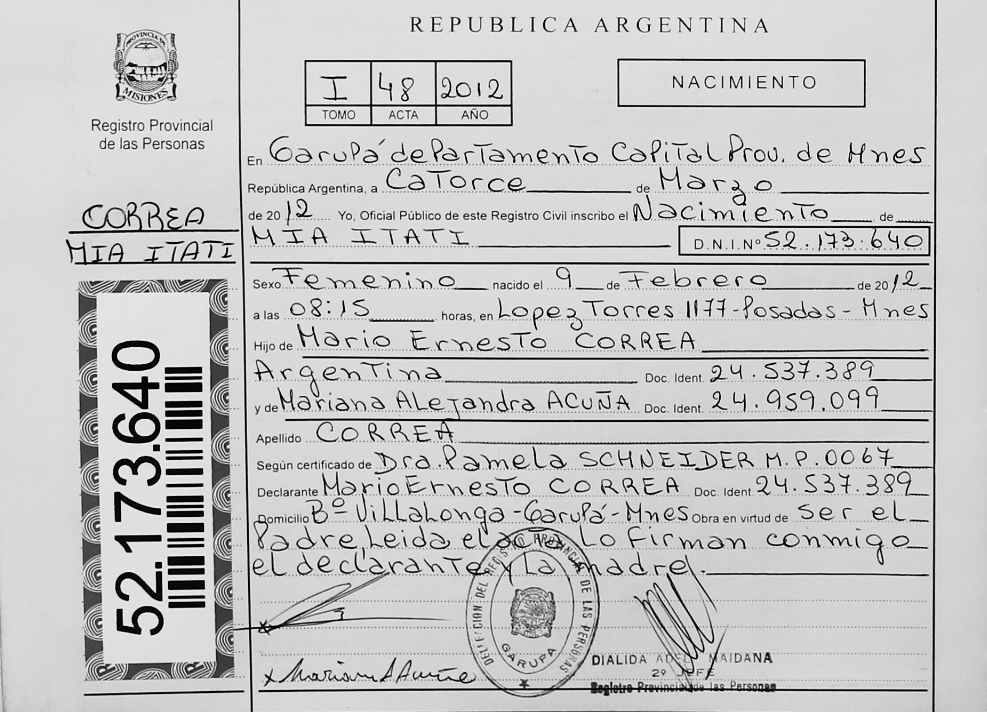 REPUBLICA ARGENTINA
PROVINCIA DE
MISIONES
Registro Provincial
de las Personas
I 48 2012
TOMO ACTA AÑO
NACIMIENTO
CORREA
MIA ITATI
52.173.640
En Garupá departamento Capital Prov. de Mnes
República Argentina, a Catorce de Marzo
de 2012 Yo, Oficial Público de este Registro Civil inscribo el Nacimiento de
MIA ITATI D.N.I.Nº 52.173.640
Sexo Femenino nacido el 9 de Febrero de 2012
a las 08:15 horas, en Lopez Torres 1177-Posadas-Mnes
Hijo de Mario Ernesto CORREA
Argentina Doc. Ident. 24.537.389
y de Mariana Alejandra ACUÑA Doc. Ident. 24.959.099
Apellido CORREA
Según certificado de Dra. Pamela SCHNEIDER M.P.0067
Declarante Mario Ernesto CORREA Doc. Ident 24.537.389
Domicilio Bº Villalonga-Garupá-Mnes Obra en virtud de ser el
Padre Leida el acta Lo firman conmigo
el declarante y La madre.
DELEGACION DEL REGISTRO PROVINCIAL DE LAS PERSONAS
GARUPA
x Mariana A Acuña
DIALIDA ADELA MAIDANA
2º JEFE
Registro Provincial de las Personas